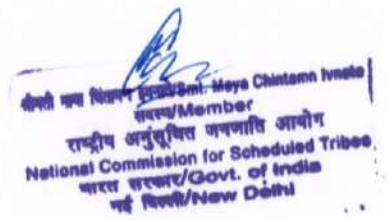 श्रीमती माया चिंतामन इवनाते/Smt. Maya Chintamn Ivnate
सदस्य/Member
राष्ट्रीय अनुसूचित जनजाति आयोग
National Commission for Scheduled Tribes
भारत सरकार/Govt. of India
नई दिल्ली/New Delhi